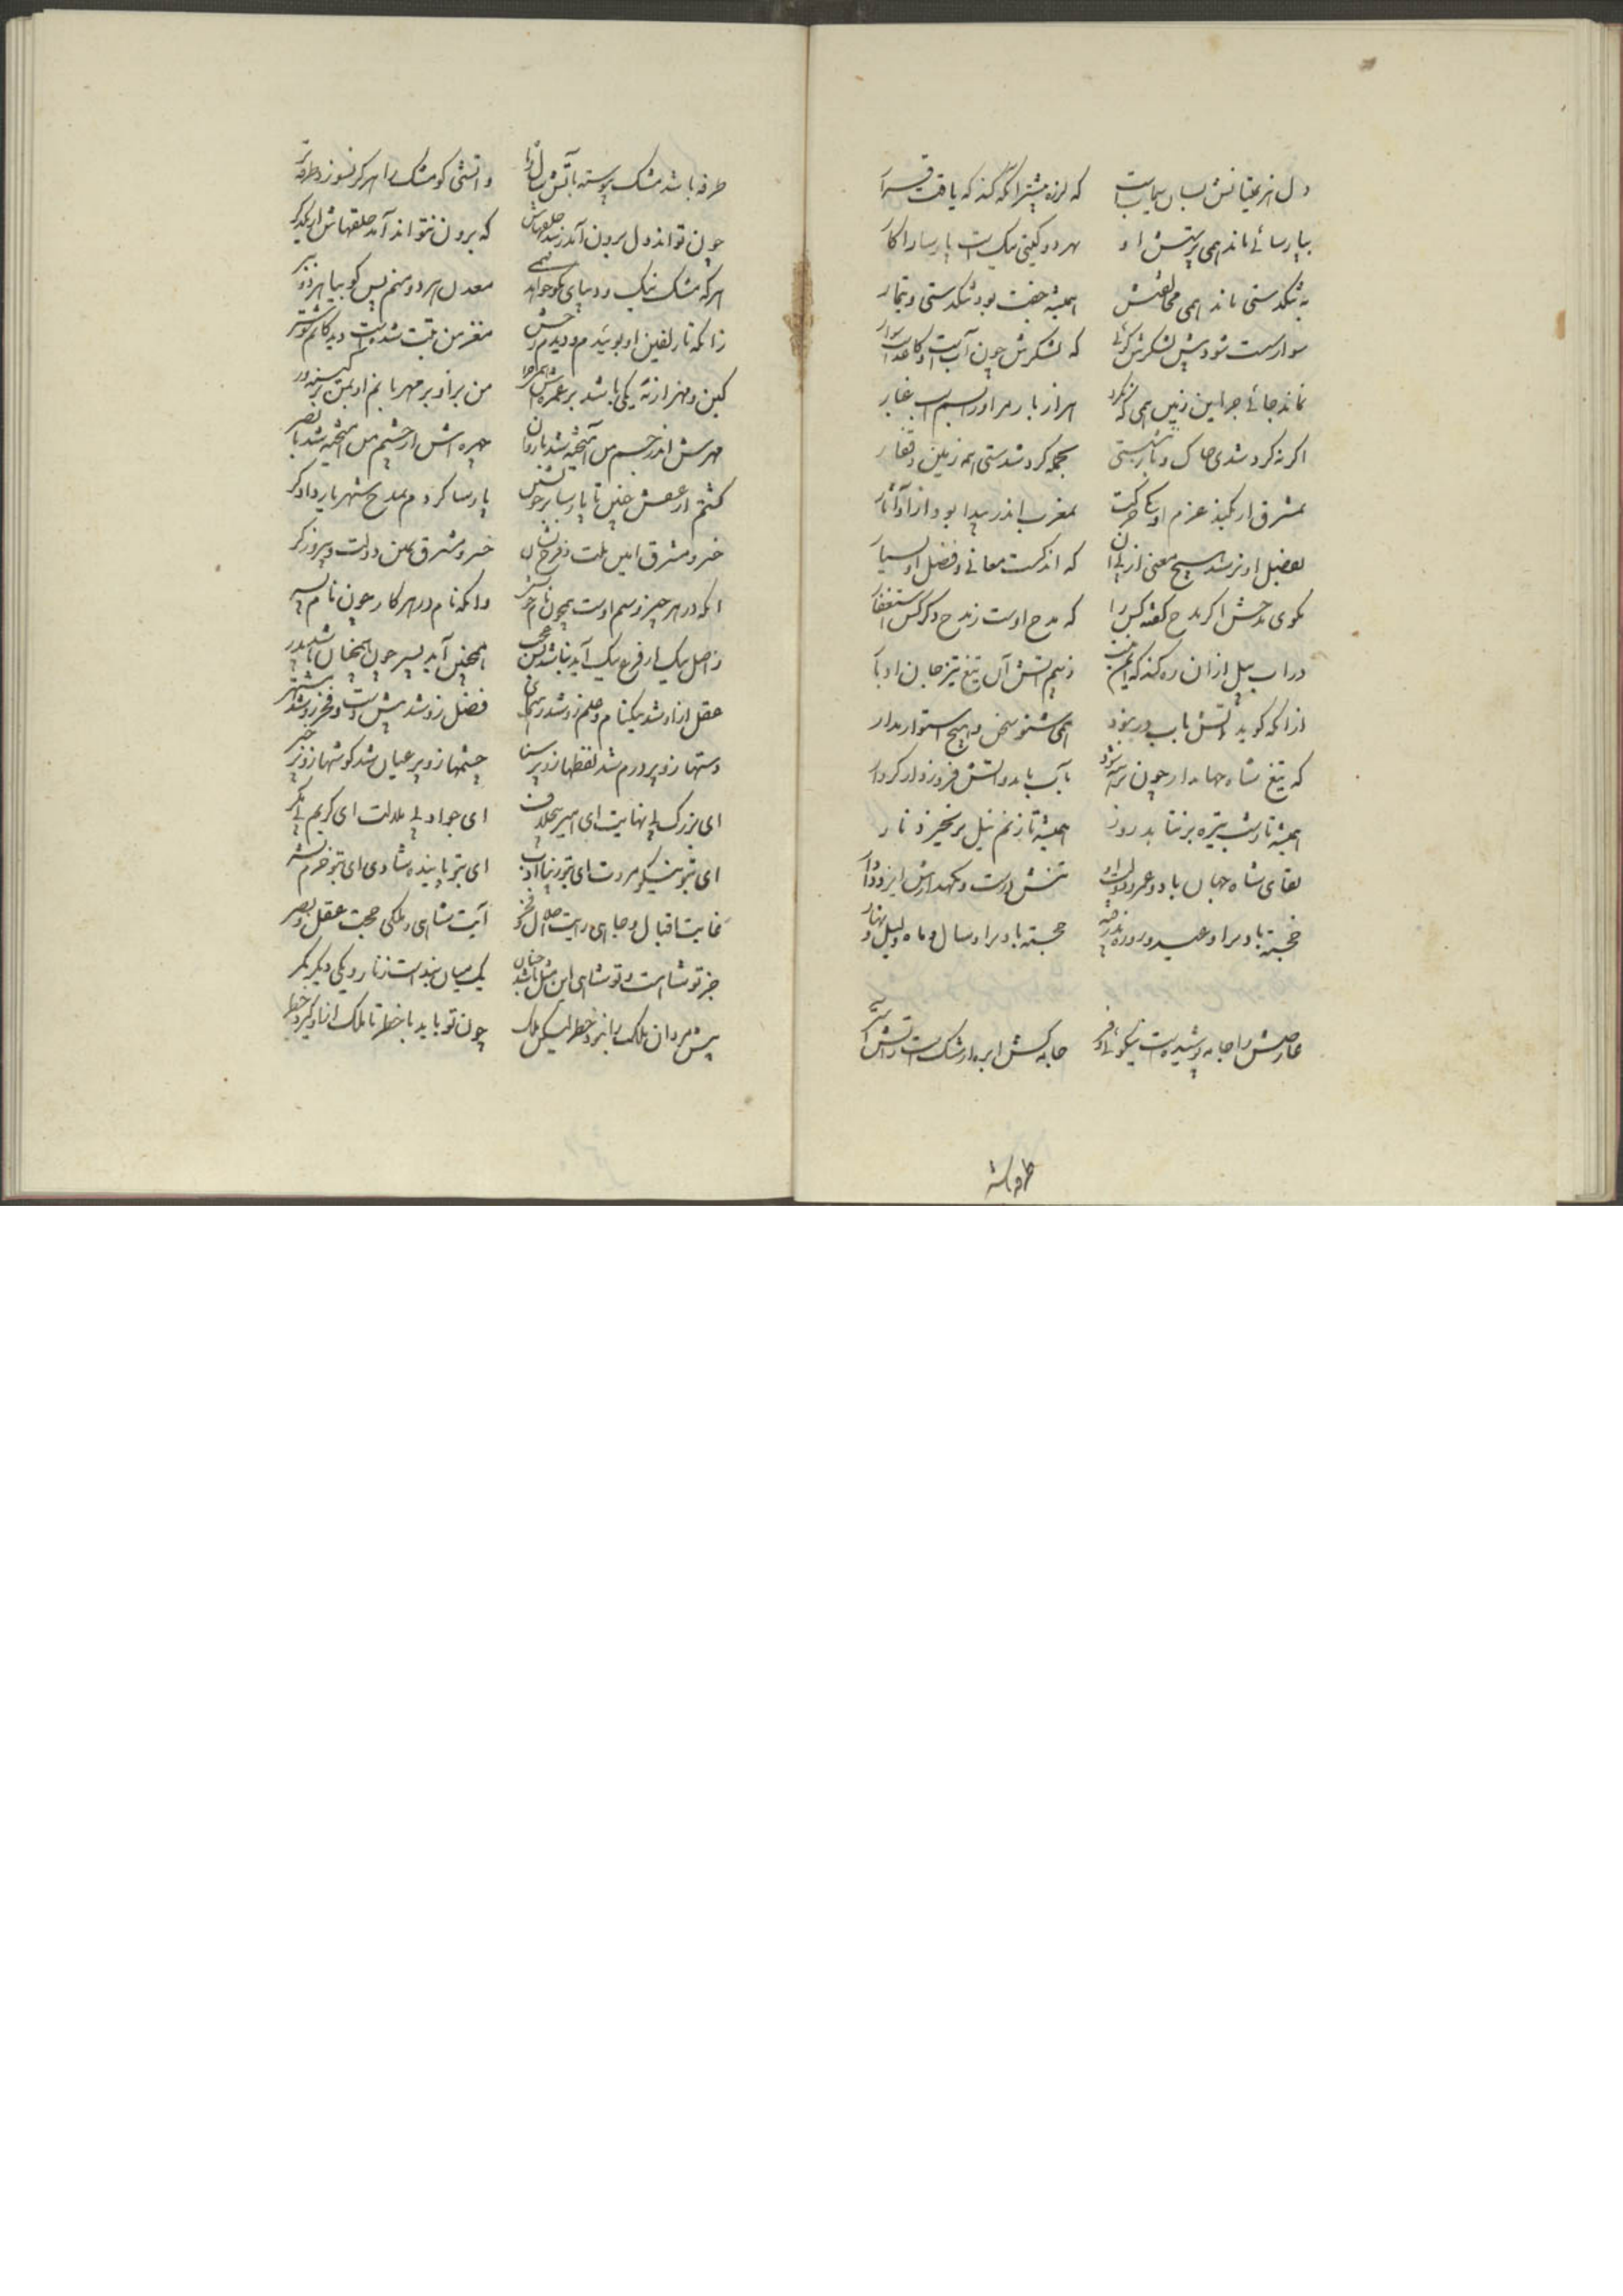 دل هزیمتیانش بسان سیمابست که لرزه بیشتر انگه کند که یافت قرار
بپارسائی ماند همی پرستش او بهر دو گیتی نیکست پارسا را کار
به تنگدستی ماند همی مخالفتش همیشه جفت بود تنگدستی و تیمار
سوار سست شود پیش لشکرش گوئی که لشکرش چون آبست و کاغذست سوار
نماند جائی جز این زمین همی که نکرد هزار بار مر او را بسم اسب غبار
اگر نه گرد شدی خاک و باز بنشستی بجمله گرد شدستی همه زمین و قفار
بمشرق ار بکند عزم او یکی حرکت بمغرب اندر پیدا بود از او آثار
بفضل او نرسد هیچ معنی از پی آن که اندکست معانی و فضل او بسیار
بگوی مدحش اگر مدح گفته کس را که مدح اوست ز مدح دگر کس استغفار
در آب نیل از آن ره کند که ایمن نیست ز بیم آتش آن تیغ تیز جان اوبار
از آنکه گوید کاتش بآب در نبود همی شنو سخن و هیچ استوار مدار
که تیغ شاه جهاندار چون برهنه شود بآب ماند و آتش فروزد از کردار
همیشه تا بشب تیره بر نتابد روز همیشه تا ز نم نیل بر نخیزد نار
بقای شاه جهان باد و عمر و دولت او تنش درست و نگهدارش ایزد دادار
خجسته باد بر او عید و روزه پذرفته خجسته باد بر او سال و ماه و لیل و نهار
عارضش را جامه پوشیدست نیکوئی و فر جامه کش ابره از مشکست و ز آتش آستر
طرفه باشد
طرفه باشد مشک پیوسته بآتش سال و ماه و آتشی کو مشک را هرگز نسوزد طرفه تر
چون تواند دل برون آمد ز بند حلقهاش که برون نتواند آمد حلقهاش از یکدگر
هر که مشک نیک و دیبای نکو خواهد همی معدن هر دو منم پس گو بیا هر دو ببر
زانکه تا زلفین او بوئیدم و دیدم رخش مغز من تبت شدست و دیدگانم شوشتر
کین و مهر از نه یکی باشد بر عمره مرا من بر او بر مهربانم او بمن بر کینه ور
مهرش اندر جسم من آمیخته شد با روان چهره اش از چشم من آمیخته شد با بصر
گشتم از عشقش چنین تا پارسا بر خویشتن پارسا گردم بمدح شهریار دادگر
خسرو مشرق امین ملت و فرخ نشان خسرو مشرق یمین دولت و پیروزگر
آنکه در هر چیز رسم اوست همچون نام خویش وانکه نام در هر کار چون نام پدر
ز اصل نیک ار فرع نیک آید نباشد بس عجب همچنین آید پسر چون همچنان باشد پدر
عقل از او شد نیکنام و علم زو شد رهنمای فضل زو شد پیش دست و فخر زو شد مشتهر
دستها زو پر درم شد لفظها زو پر سنا چشمها زو پر عیان شد گوشها زو پر خبر
ای بزرگ بی نهایت ای امیر بی خلاف ای جواد بی ملالت ای کریم بی مگر
ای بتو نیکو مروت ای بتو زیبا ادب ای بتو پاینده شادی ای بتو خرم بشر
غایت اقبال و جاهی رایت اجلال و فخر آیت شاهی و ملکی حجت عقل و بصر
جز تو شاه است و تو شاهی این مثل باشد چنان یک میان بند است زنار و یکی دیگر کمر
پیش مردان ملکت را نبرد خطر لیکن ملک چون تو باید با خطر تا ملک از او گیرد خطر